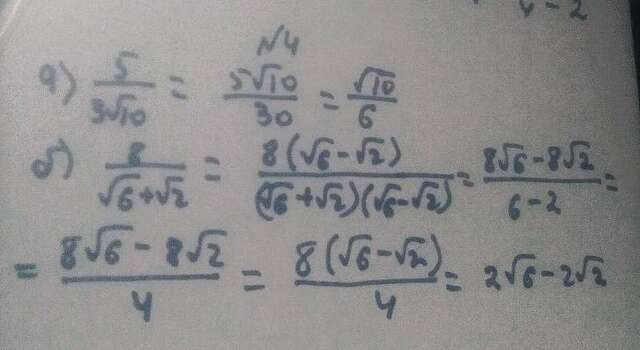 4-2
N4
а) 5/(3√10) = 5√10/30 = √10/6
б) 8/(√6+√2) = 8(√6-√2)/((√6+√2)(√6-√2)) = (8√6-8√2)/(6-2) =
= (8√6-8√2)/4 = 8(√6-√2)/4 = 2√6-2√2